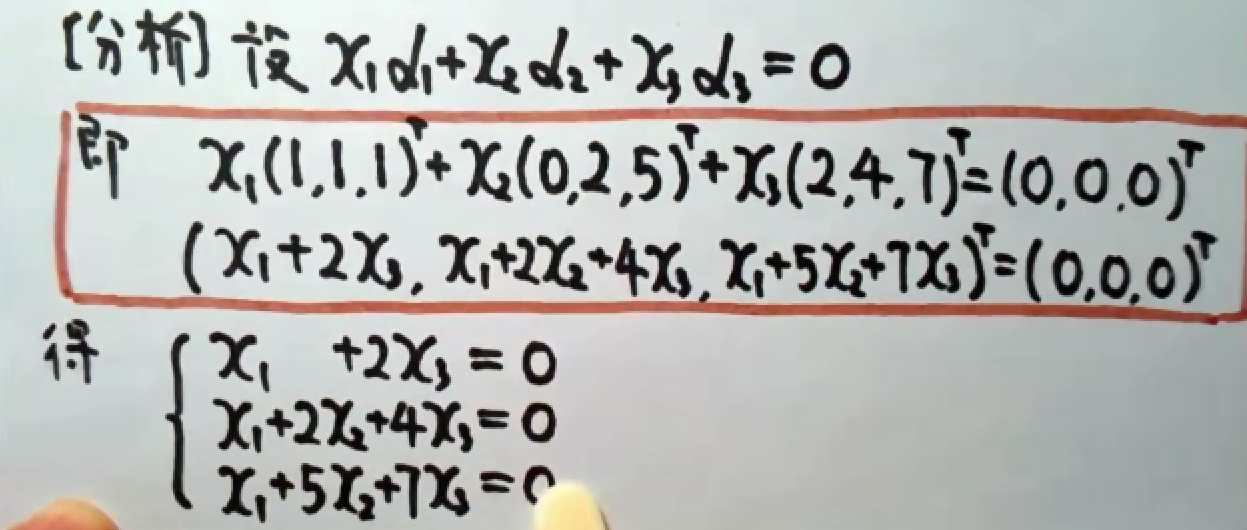 [分析] 设 x₁α₁+x₂α₂+x₃α₃=0
即 x₁(1,1,1)ᵀ+x₂(0,2,5)ᵀ+x₃(2,4,7)ᵀ=(0,0,0)ᵀ
(x₁+2x₃, x₁+2x₂+4x₃, x₁+5x₂+7x₃)ᵀ=(0,0,0)ᵀ
得 { x₁ +2x₃=0
x₁+2x₂+4x₃=0
x₁+5x₂+7x₃=0